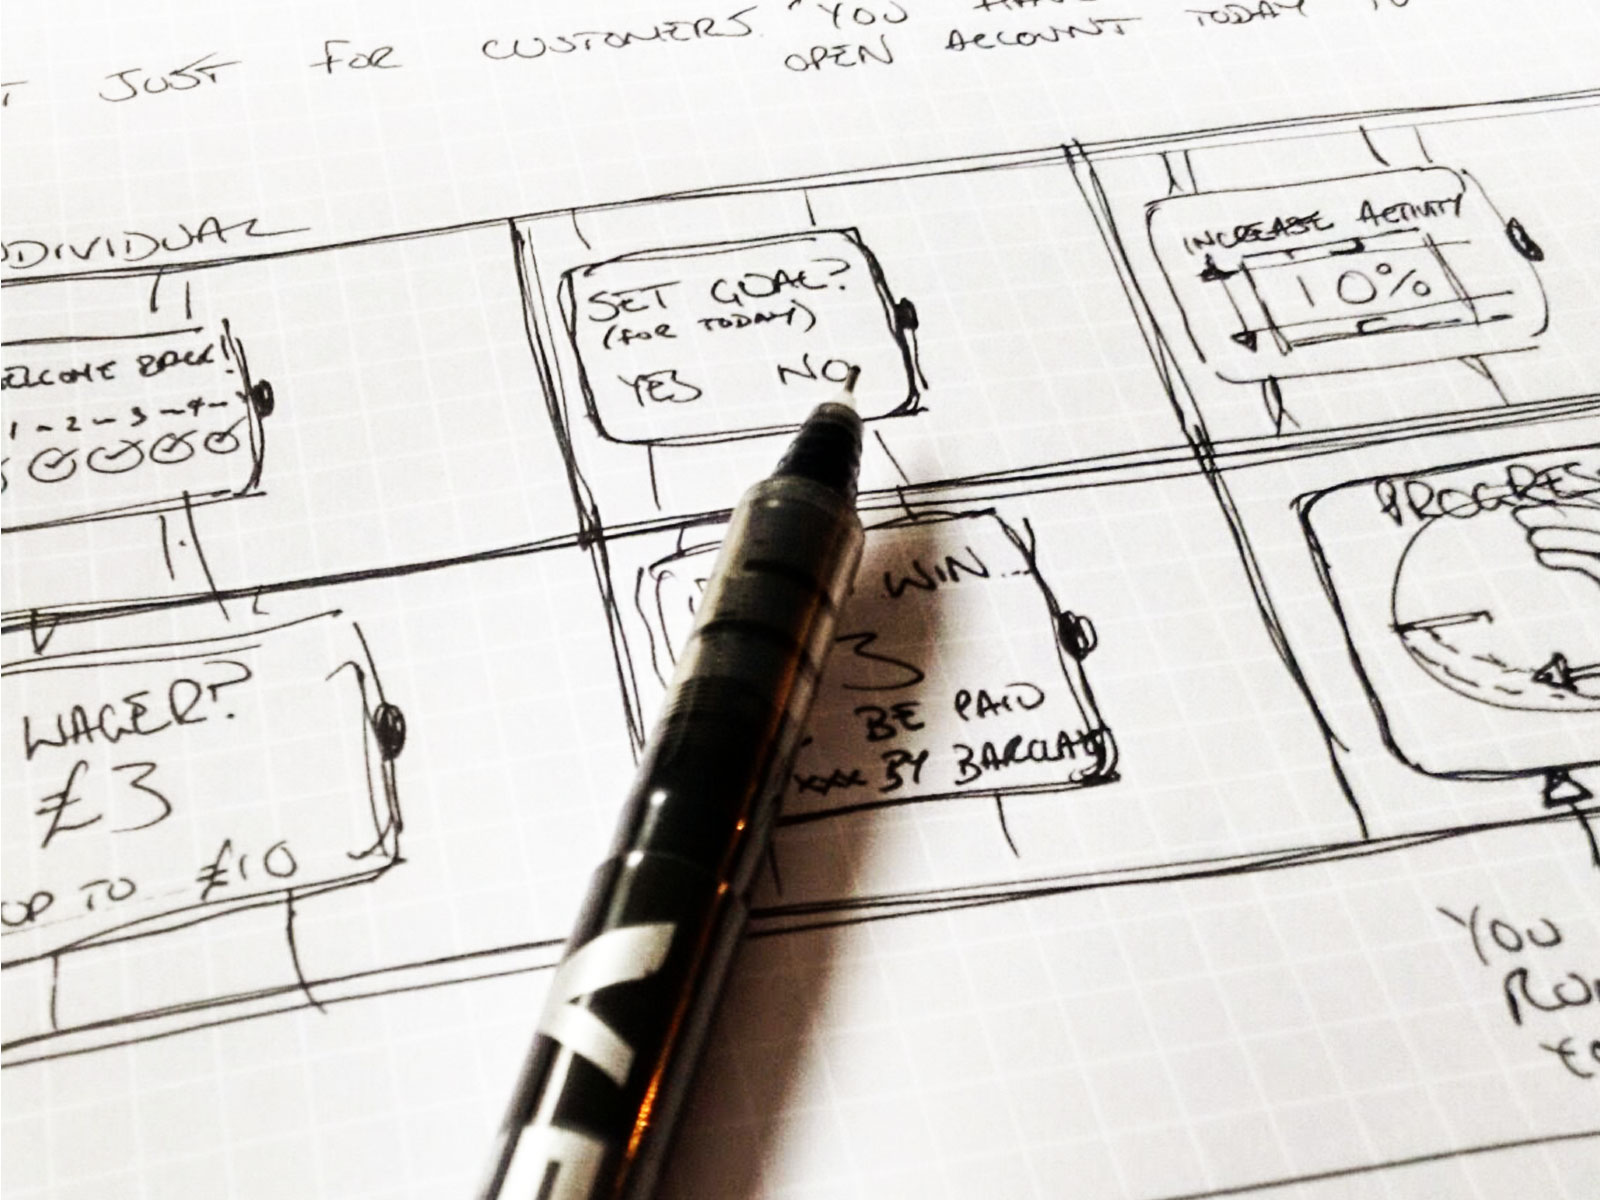 JUST FOR CUSTOMERS. "YOU
OPEN ACCOUNT TODAY TO
NDIVIDUAL
ELCOME BACK!
1 - 2 - 3 - 4 -
SET GOAL?
(FOR TODAY)
YES NO
INCREASE ACTIVITY
10%
WAGER?
£3
UP TO £10
WIN...
3
BE PAID
xxx BY BARCLAYS
PROGRES
YOU